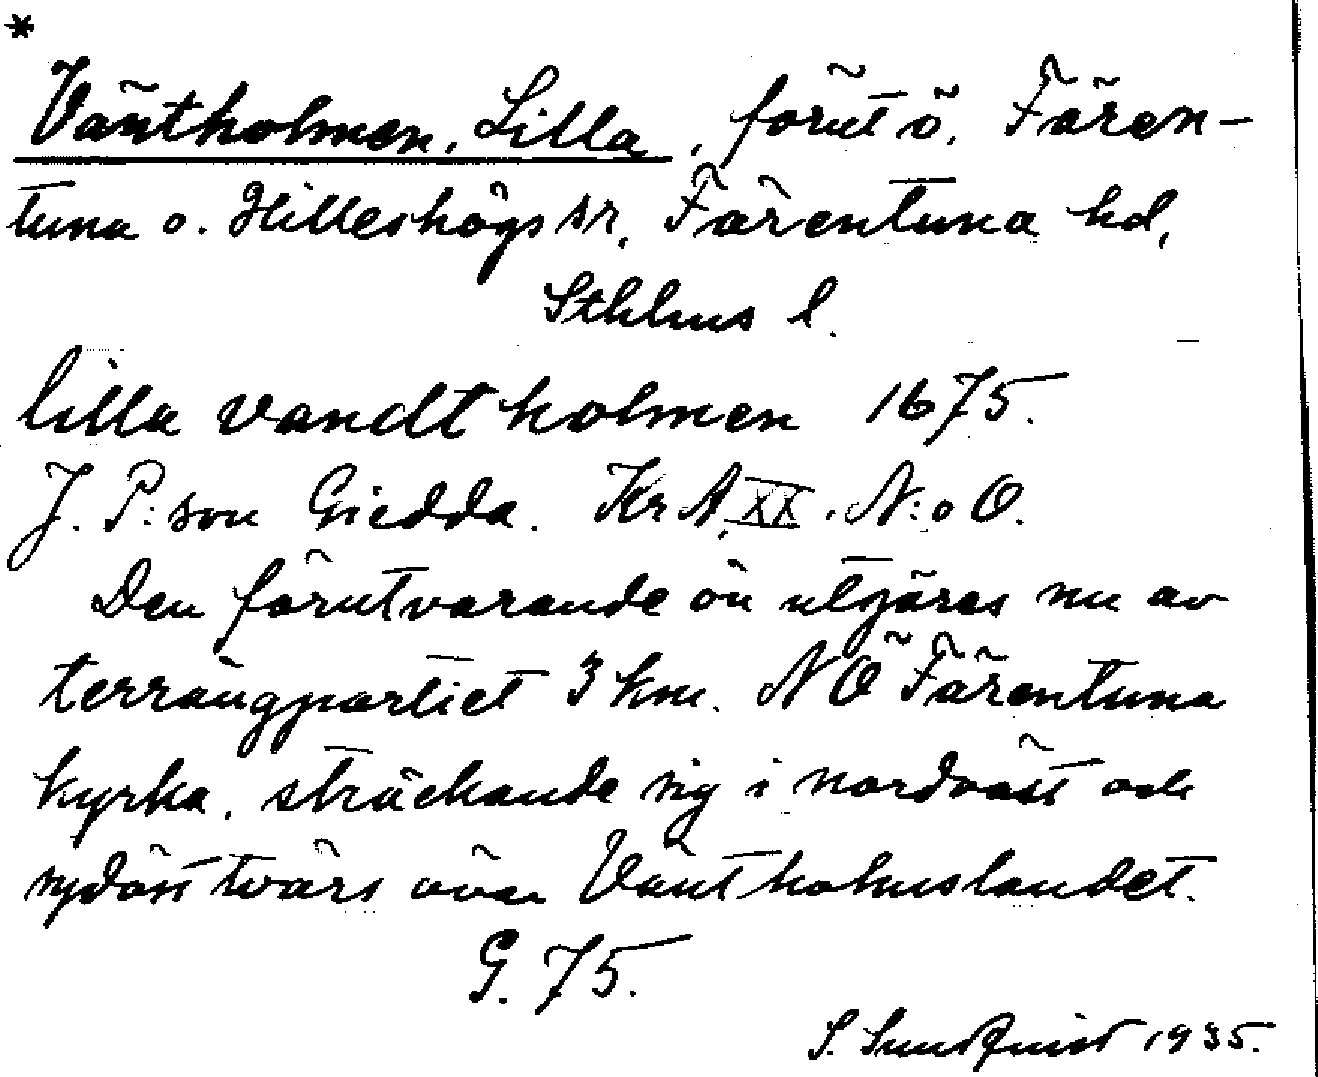 *
Väntholmen, Lilla, förut ö, Fären-
tuna o. Hilleshögs sr, Färentuna hd,
Sthlms l.
lilla vandt holmen 1675.
J. P:son Giedda. KrA, XX. N:o O.
Den förutvarande ön utgöres nu av
terrängpartiet 3 km. NÖ Färentuna
kyrka, sträckande sig i nordväst och
sydöst tvärs över Väntholmslandet.
G. 75.
S. Sundquist 1935.